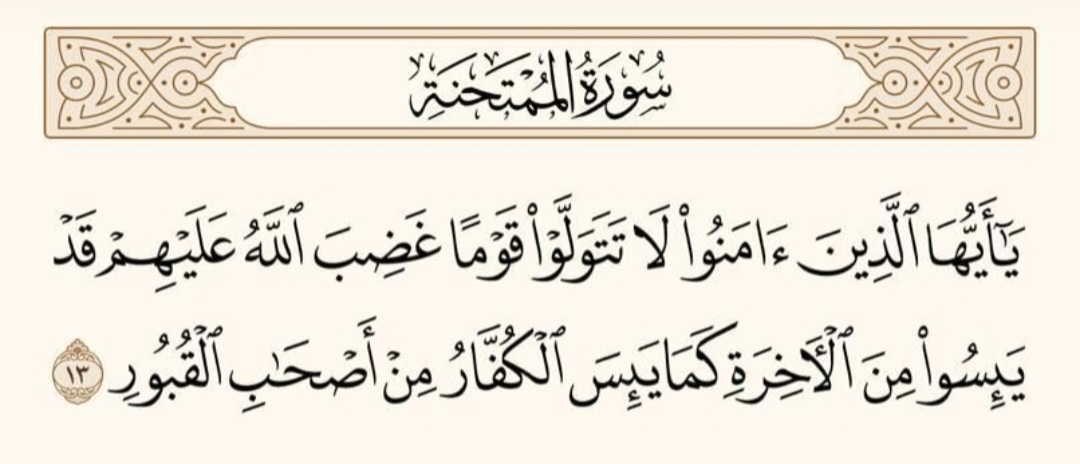 سُورَةُ المُمْتَحَنَةِ
يَٰٓأَيُّهَا ٱلَّذِينَ ءَامَنُوا۟ لَا تَتَوَلَّوْا۟ قَوْمًا غَضِبَ ٱللَّهُ عَلَيْهِمْ قَدْ
يَئِسُوا۟ مِنَ ٱلْـَٔاخِرَةِ كَمَا يَئِسَ ٱلْكُفَّارُ مِنْ أَصْحَٰبِ ٱلْقُبُورِ ١٣